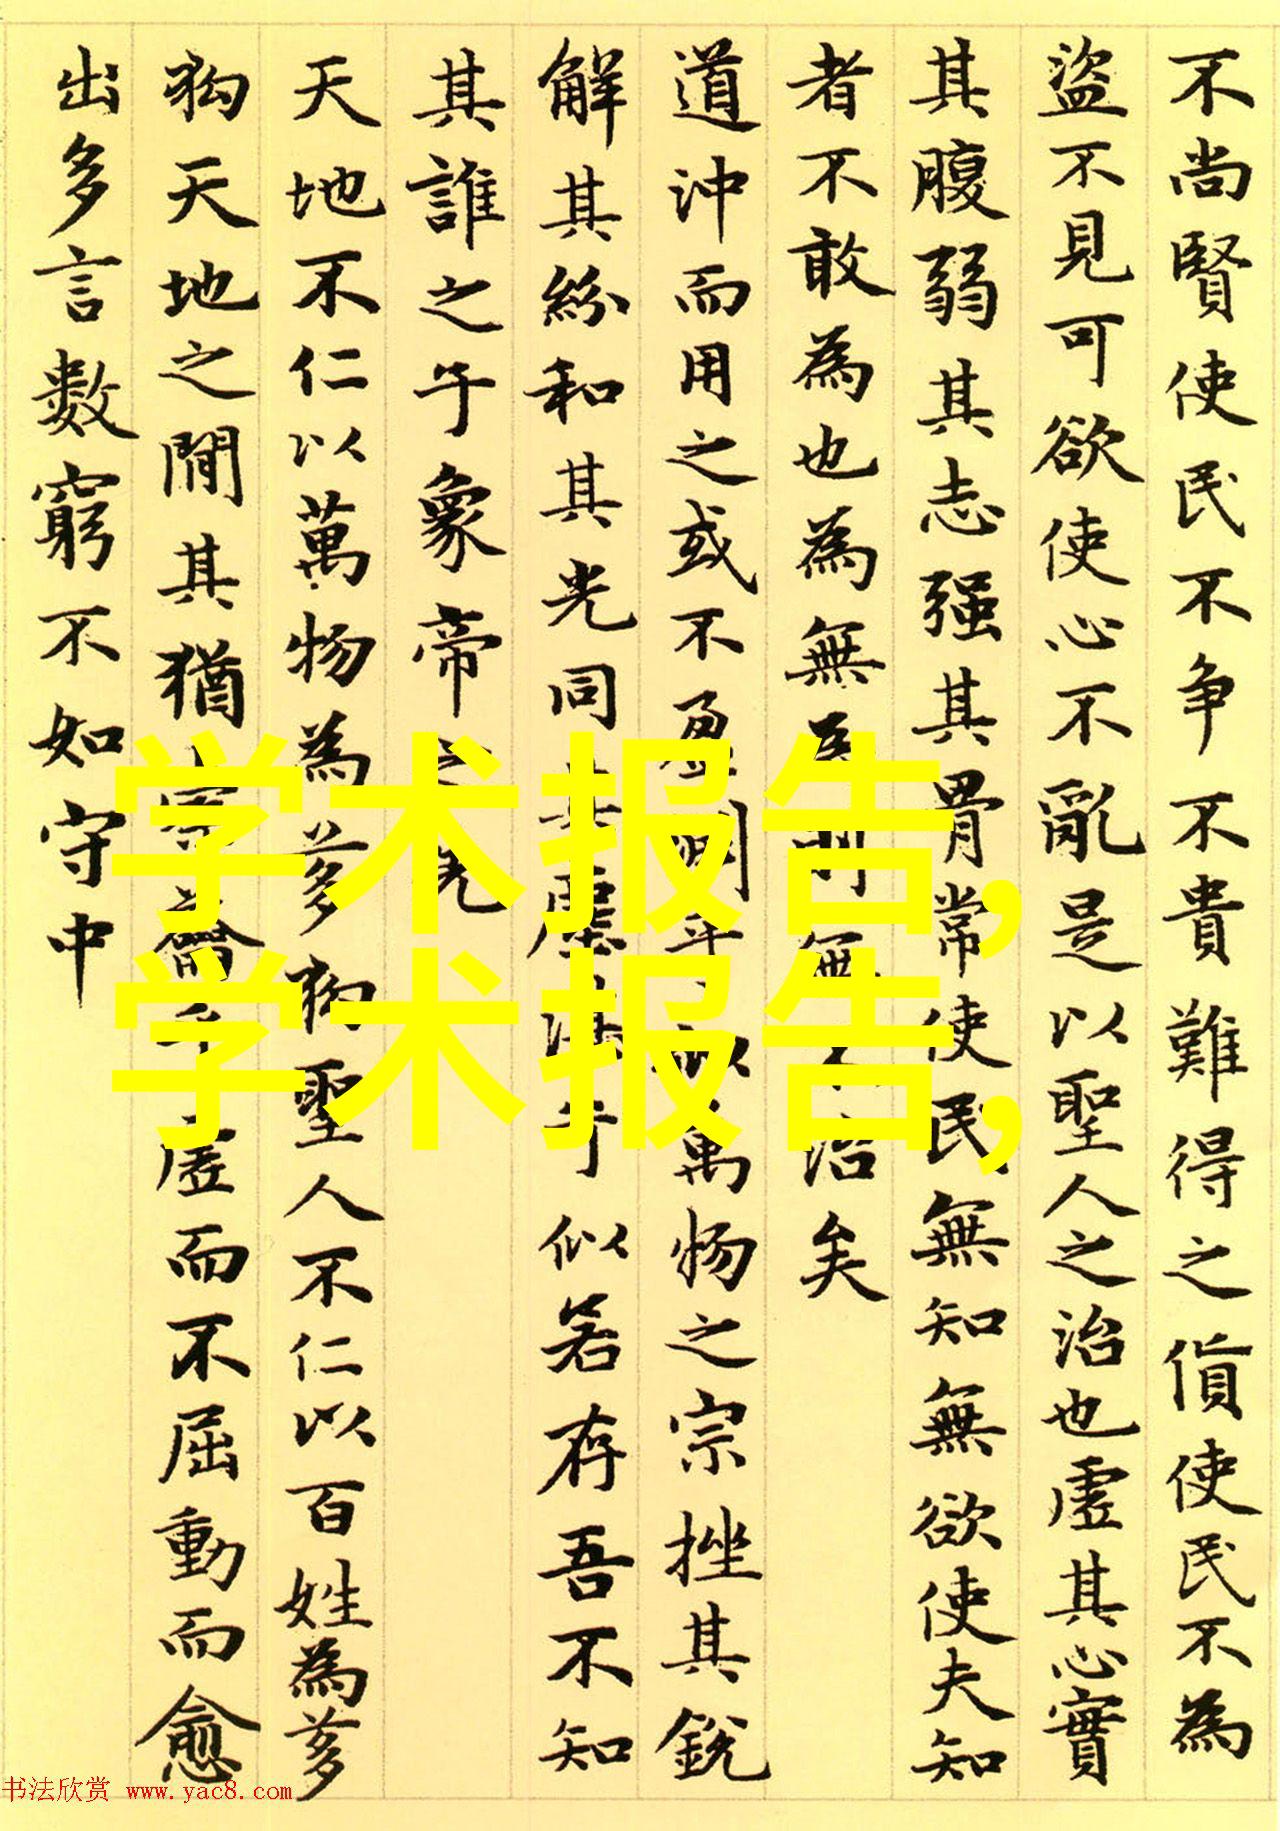 不尚賢使民不争不貴難得之貨使民不為
盜不見可欲使心不亂是以聖人之治也虛其心實
其腹弱其志强其骨常使民無知無欲使夫知
者不敢為也為無則無治矣
道沖而用之或不盈淵乎似萬物之宗挫其銳
解其紛和其光同其塵湛乎似若存吾不知
其誰之子象帝之先
天地不仁以萬物為芻狗聖人不仁以百姓為芻
狗天地之間其猶橐籥乎虛而不屈動而愈
出多言數窮不如守中
学术报告,
学术报告,
书法欣赏 www.yac8.com